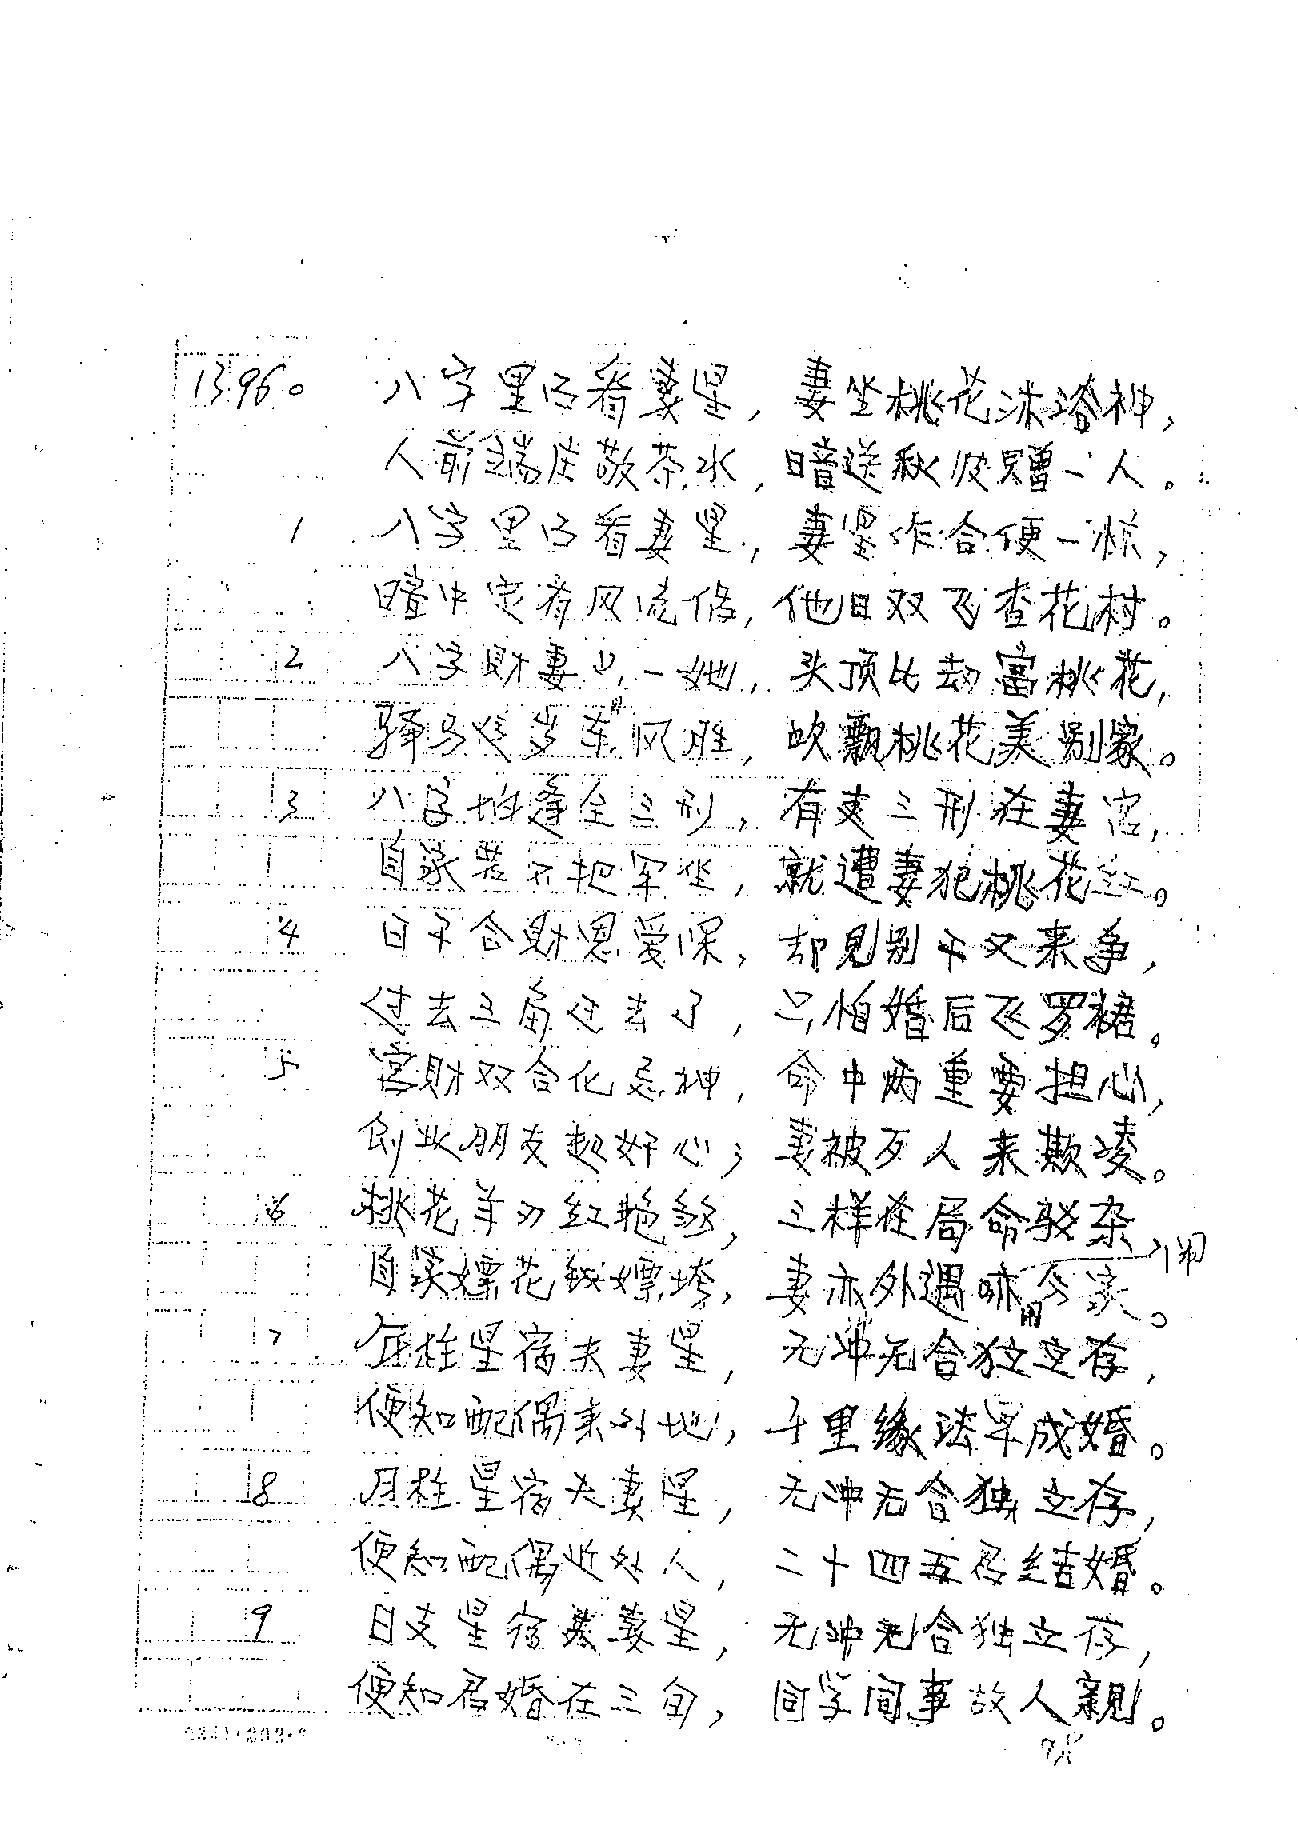 13960 八字里白看妻星，妻坐桃花沐浴神，
人前端庄敬茶水，暗送秋波赠一人。
1 八字里白看妻星，妻星作合便一惊，
暗中定有风流侣，他日双飞杏花村。
2 八字财妻只一她，头顶比劫富桃花，
驿马逢岁东风胜，吹飘桃花美别家。
3 八字地逢全三刑，有支三刑在妻宫，
自家若不把牢坐，就遭妻犯桃花红。
4 日干合财恩爱深，却见别干又来争，
过去三角过去了，只怕婚后飞罗裙。
5 宫财双合化忌神，命中两重要担心，
创业朋友起奸心；妻被歹人来欺凌。
6 桃花羊刃红艳多，三样在局命驳杂
自家嫖花 嫖垮，妻亦外遇 家。
7 年柱星宿夫妻星，无冲无合独立存，
便知配偶来外地，千里缘法早成婚。
8 月柱星宿夫妻星，无冲无合独立存，
便知配偶近处人，二十四五君结婚。
9 日支星宿美妻星，无冲无合独立存，
便知君婚在三旬，同学同事故人亲。